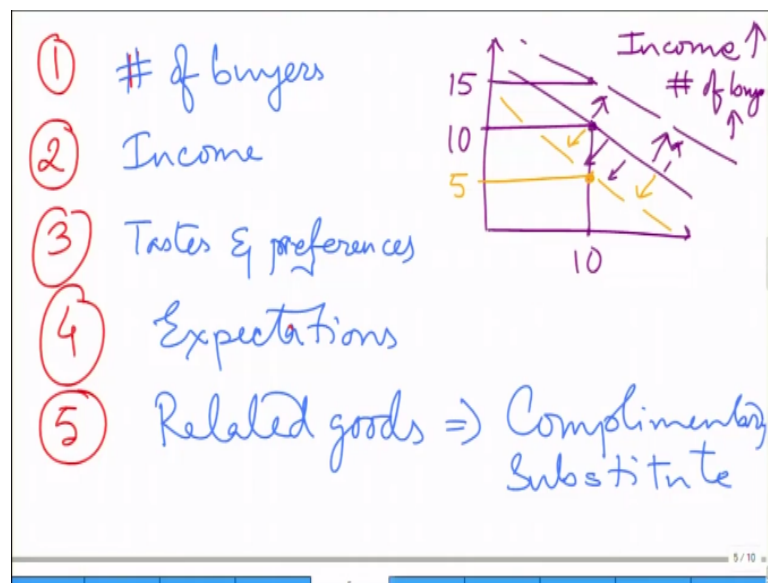 1 # of buyers
2 Income
3 Tastes & preferences
4 Expectations
5 Related goods => Complimentary
Substitute
Income ↑
# of buye
↑
15
10
5
10
5 / 10